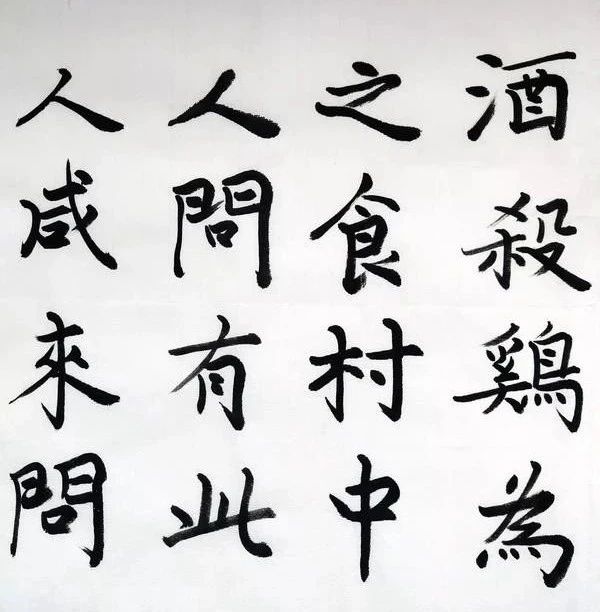 酒殺鷄為
之食村中
人問有此
人咸來問